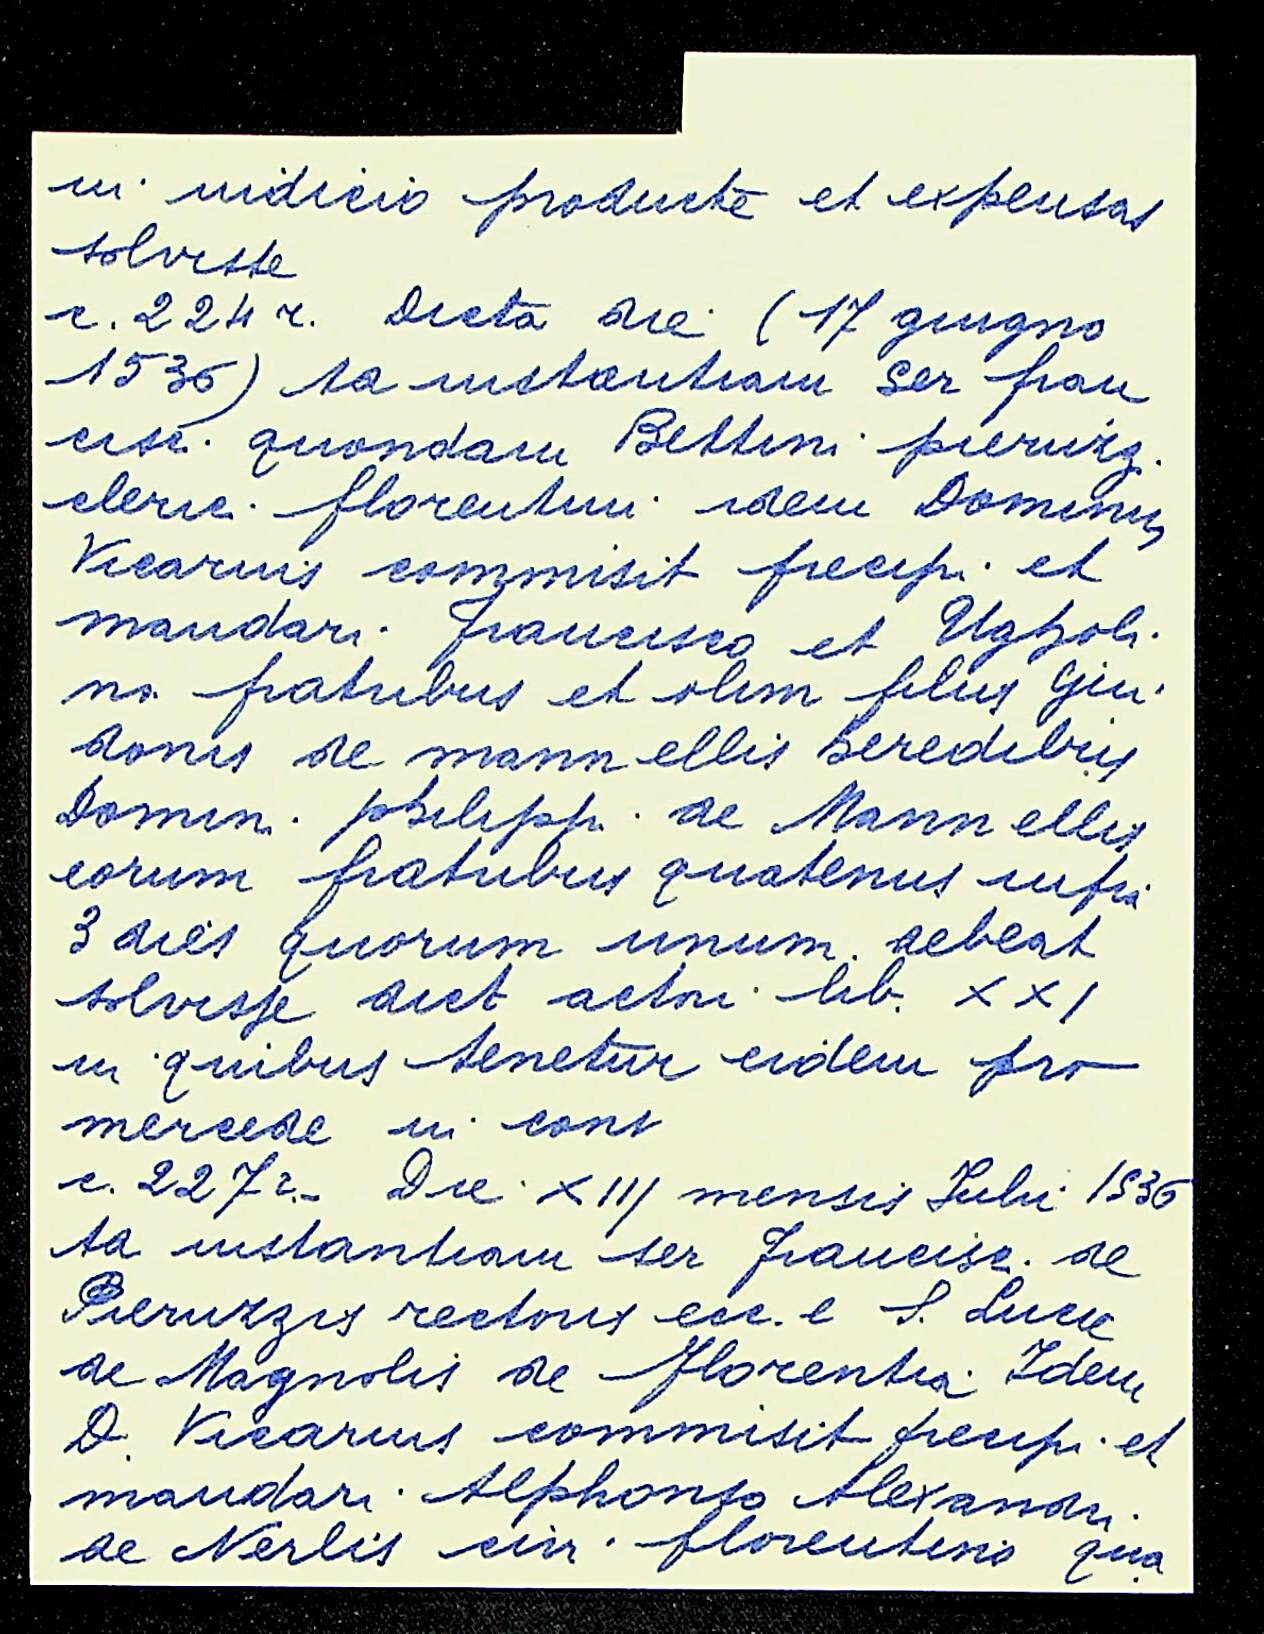 in iudicio producte et expensas
solvisse
c. 224 r. Dicta die (17 giugno
1536) Ad instantiam Ser Fran
cisc. quondam Bettini pieruzz.
cleric. florentini idem Dominus
Vicarius commisit precipi et
mandari Francisco et Ugholi
no fratribus et olim filiis Gui
donis de mannellis heredibus
Domin. philippi de Mannellis
eorum fratribus quatenus infra
3 dies quorum unum debeat
solvisse dict actori lib. XXI
in quibus tenetur eidem pro
mercede in cont
c. 227 r. Die XIII mensis Iulii 1536
Ad instantiam ser Francisc. de
Pieruzzis rectoris ecc.e S. Luce
de Magnolis de Florentia Idem
D. Vicarius commisit precipi et
mandari Alphonso Alexandri
de Nerlis civi florentino qua